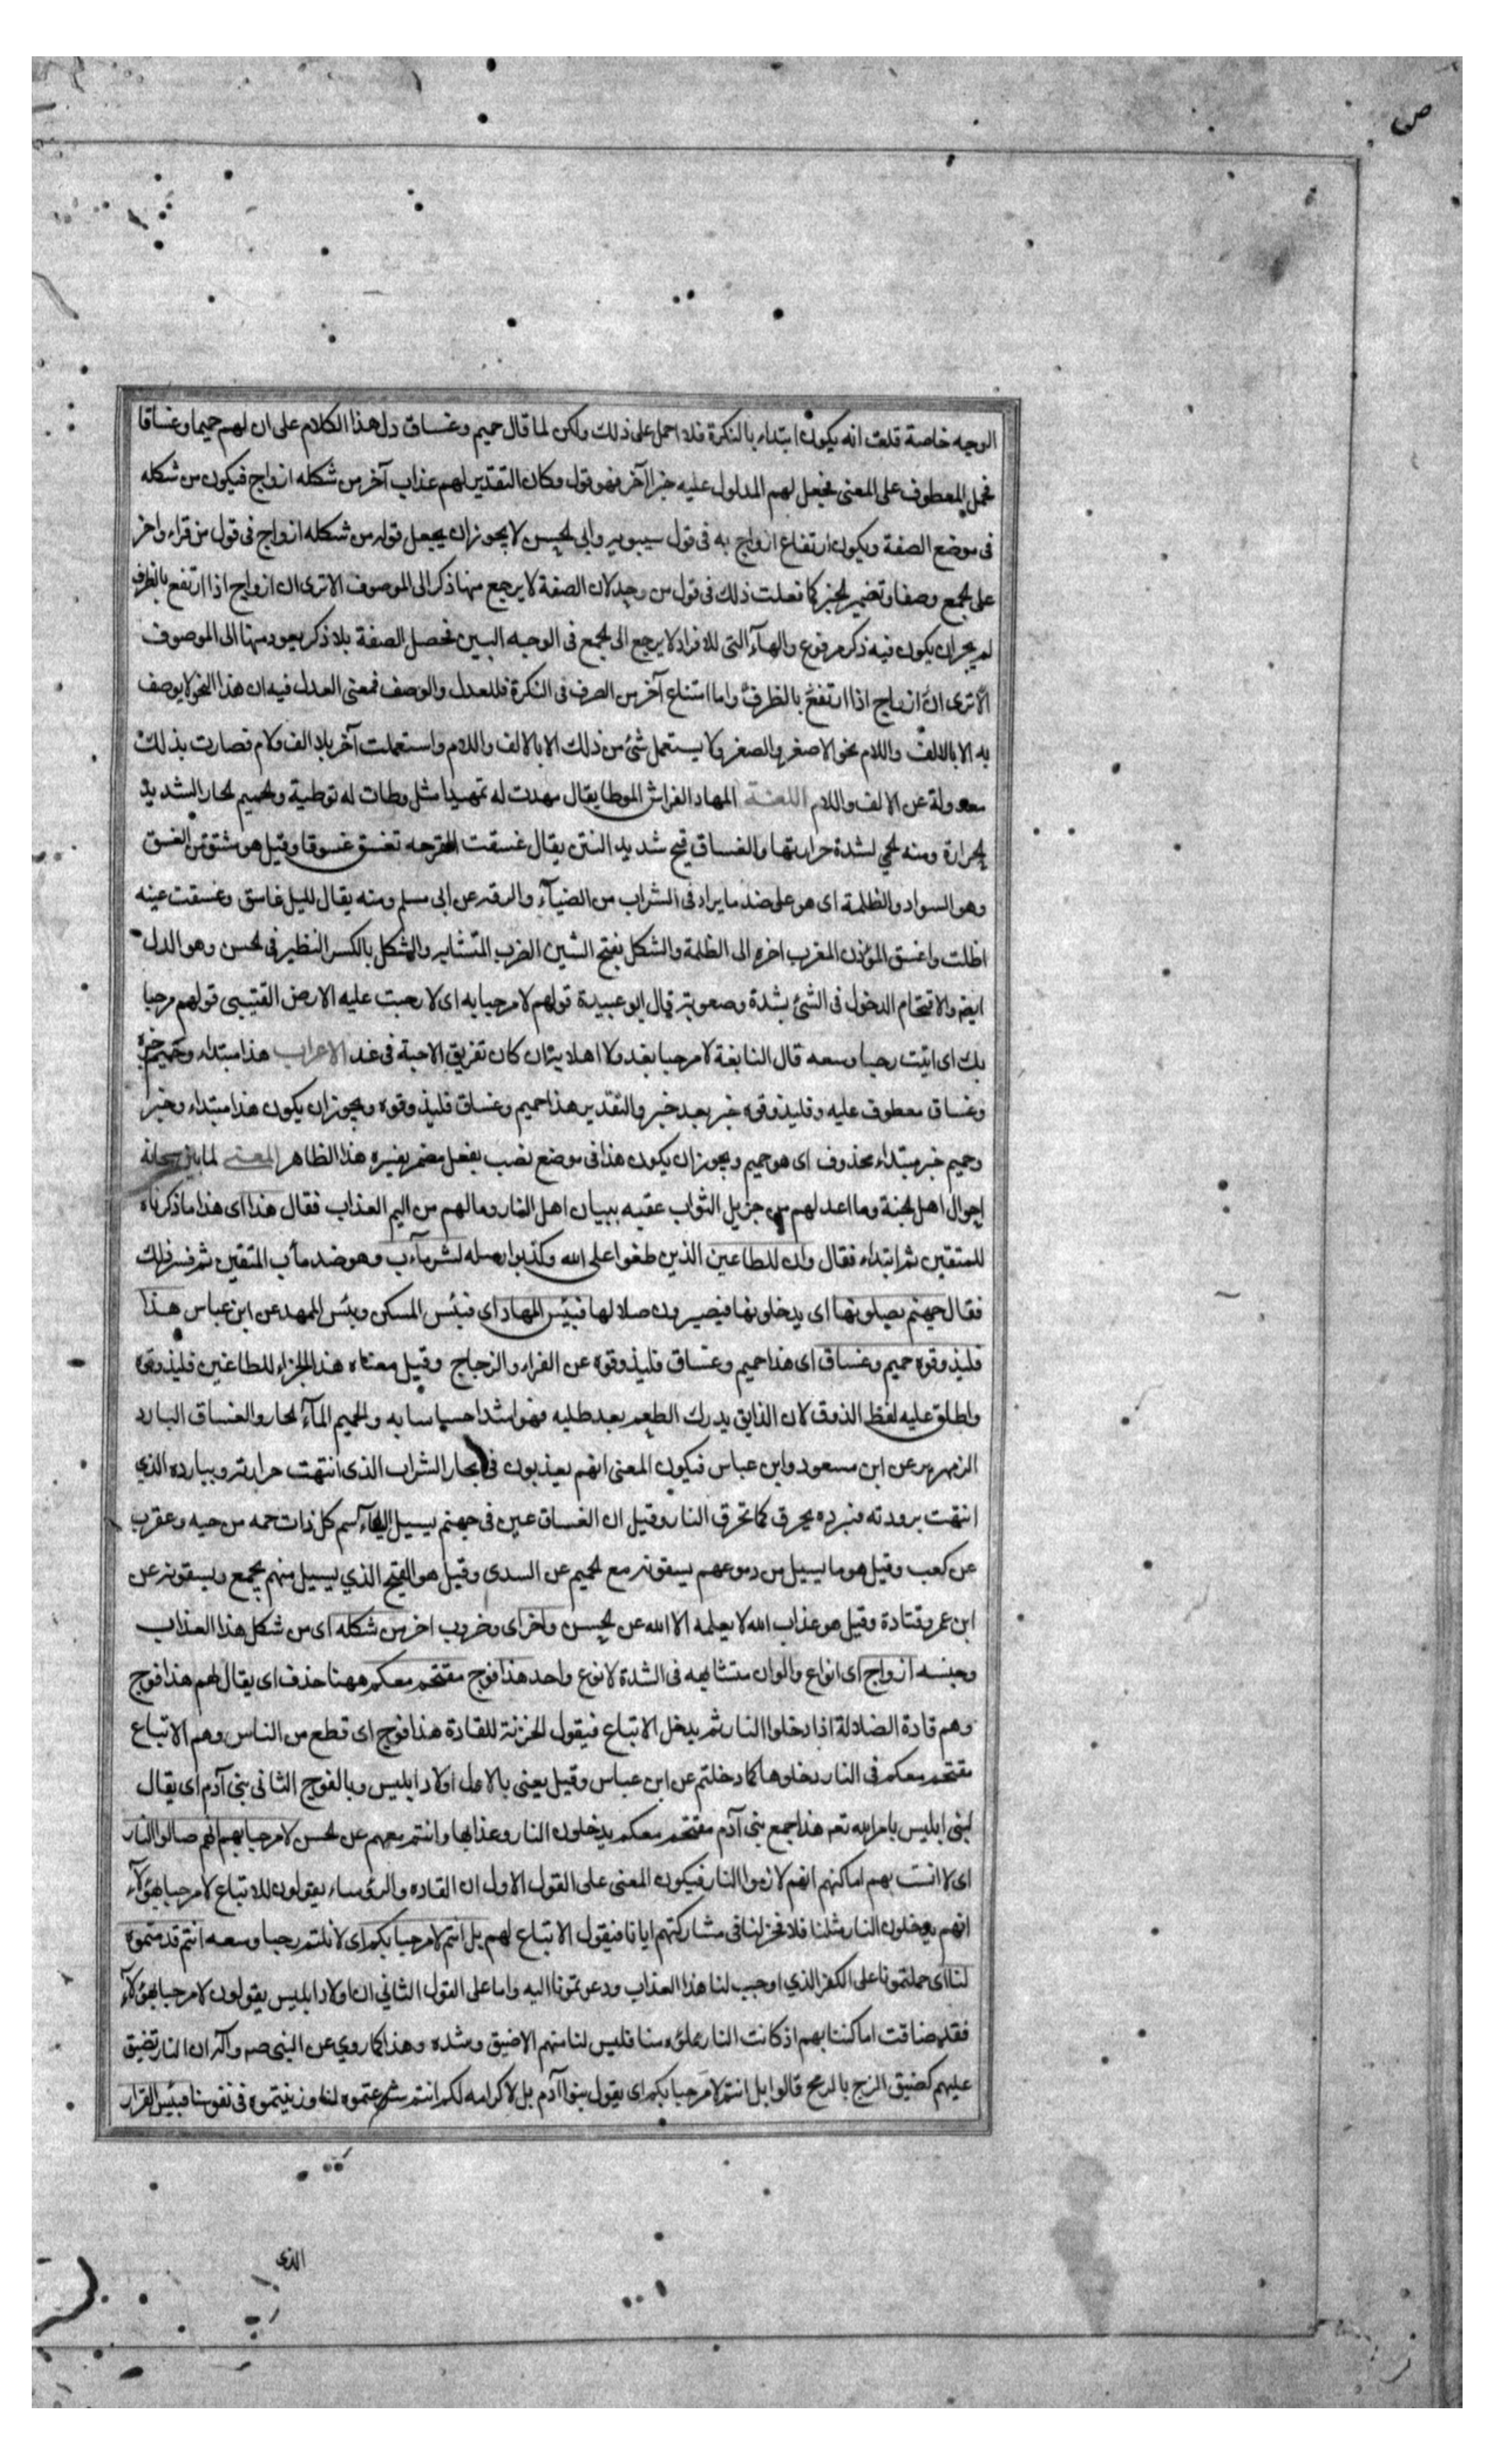 ص
الوجه خاصة قلت انه يكون ابتداء بالنكرة فلا احمل على ذلك ولكن لما قال حميم وغساق دل هذا الكلام على ان لهم حميما وغساقا
فحمل المعطوف على المعنى فجعل لهم المدلول عليه خبرا لآخر فهو قول وكان التقدير لهم عذاب آخر من شكله ازواج فيكون من شكله
فى موضع الصفة ويكون ارتفاع ازواج به فى قول سيبويه وابى الحسن لا يجوز ان يجعل قوله من شكله ازواج فى قول من قراء واخر
على الجمع وصفا وتضمير الخبر كما فعلت ذلك فى قول من وحد لان الصفة لا يرجع منها ذكر الى الموصوف الا ترى ان ازواج اذا ارتفع بالظرف
لم يجز ان يكون فيه ذكر مرفوع والهآء التى للافراد لا يرجع الى الجمع فى الوجه البين فحصل الصفة بلا ذكر يعود منها الى الموصوف
الا ترى ان ازواج اذا ارتفع بالظرف واما امتناع آخر من الصرف فى النكرة فللعدل والوصف فمعنى العدل فيه ان هذا النحو لا يوصف
به الا بالالف واللام نحو الاصغر والصغر ولا يستعمل شئ من ذلك الا بالالف واللام واستعملت آخر بلا الف ولام فصارت بذلك
معدولة عن الالف واللام اللغة المهاد الفراش الموطا يقال مهدت له تمهيدا مثل وطات له توطية والحميم الحار الشديد
الحرارة ومنه الحمى لشدة حرارتها والغساق قيح شديد النتن يقال غسقت القرحه تغسق غسوقا وقيل هو مشتق من الغسق
وهو السواد والظلمة اى هو على ضد ما يراد فى الشراب من الضيآء والرقه عن ابى مسلم ومنه يقال لليل غاسق وغسقت عينه
اظلت واغسق المؤذن المغرب اخره الى الظلمة والشكل بفتح الشين الضرب المتشابه والشكل بالكسر النظير فى الحسن وهو الدل
ايضا والاقتحام الدخول فى الشئ بشدة وصعوبة قال ابو عبيدة قولهم لا مرحبا به اى لا رحبت عليه الارض القتيبى قولهم مرحبا
بك اى اتيت رحبا وسعه قال النابغة لا مرحبا بغد ولا اهلا به ان كان تفريق الاحبة فى غد الاعراب هذا مبتداء وحميم خبره
وغساق معطوف عليه وفليذوقوه خبر بعد خبر والتقدير هذا حميم وغساق فليذوقوه ويجوز ان يكون هذا مبتداء وخبر
وحميم خبر مبتداء محذوف اى هو حميم ويجوز ان يكون هذا فى موضع نصب بفعل مضمر يفسره هذا الظاهر المعنى لما بين سبحانه
احوال اهل الجنة وما اعد لهم من جزيل الثواب عقبه ببيان اهل النار وما لهم من اليم العذاب فقال هذا اى هذا ما ذكرناه
للمتقين ثم ابتداء فقال وان للطاغين الذين طغوا على الله وكذبوا رسله لشر مآب وهو ضد مأب المتقين ثم فسر ذلك
فقال جهنم يصلونها اى يدخلونها فيصيرون صلا لها فبئس المهاد اى فبئس المسكن وبئس الممهد عن ابن عباس هذا
فليذوقوه حميم وغساق اى هذا حميم وغساق فليذوقوه عن الفراء والزجاج وقيل معناه هذا الجزاء للطاغين فليذوقوه
واطلق عليه لفظ الذوق لان الذايق يدرك الطعم بعد طلبه فهو اشد احساسا به والحميم المآء الحار والغساق البارد
الزمهرير عن ابن مسعود وابن عباس فيكون المعنى انهم يعذبون فى بحار الشراب الذى انتهت حرارته وببارده الذي
انتهت برودته فبرده يحرق كما تحرق النار وقيل ان الغساق عين فى جهنم يسيل اليها سم كل ذات حمه من حيه وعقرب
عن كعب وقيل هو ما يسيل من دموعهم يسقونه مع الحميم عن السدى وقيل هو القيح الذي يسيل منهم يجمع ويسقونه عن
ابن عمر وقتادة وقيل هو عذاب الله لا يعلمه الا الله عن الحسن واخر اى وضروب اخر من شكله اى من شكل هذا العذاب
وجنسه ازواج اى انواع والوان متشابهه فى الشدة لا نوع واحد هذا فوج مقتحم معكم ههنا حذف اى يقال لهم هذا فوج
وهم قادة الضلالة اذا دخلوا النار ثم يدخل الاتباع فيقول الخزنة للقادة هذا فوج اى قطع من الناس وهم الاتباع
مقتحم معكم فى النار دخلوها كما دخلتم عن ابن عباس وقيل يعنى بالاول اولاد ابليس وبالفوج الثانى بنى آدم اى يقال
لبنى ابليس بامر الله تعه هذا جمع بنى آدم مقتحم معكم يدخلون النار وعذابها وانتم معهم عن الحسن لا مرحبا بهم انهم صالوا النار
اى لا اتسعت بهم اماكنهم انهم لازموا النار فيكون المعنى على القول الاول ان القاده والرؤساء يقولون للاتباع لا مرحبا بهؤلآء
انهم يدخلون النار مثلنا فلا فرج لنا فى مشاركتهم ايانا فيقول الاتباع لهم بل انتم لا مرحبا بكم اى لا نلتم رحبا وسعه انتم قدمتموه
لنا اى حملتمونا على الكفر الذي اوجب لنا هذا العذاب ودعوتمونا اليه واما على القول الثاني ان اولاد ابليس يقولون لا مرحبا بهؤلآء
فقد ضاقت اماكننا بهم اذ كانت النار مملؤه منا فليس لنا منهم الا ضيق وشده وهذا كما روي عن النبى صه وآله ان النار تضيق
عليهم كضيق الزج بالرمح قالوا بل انتم لا مرحبا بكم اى يقول بنوا آدم بل لا كرامه لكم انتم شرعتموه لنا وزينتموه فى نفوسنا فبئس القرار
الذى